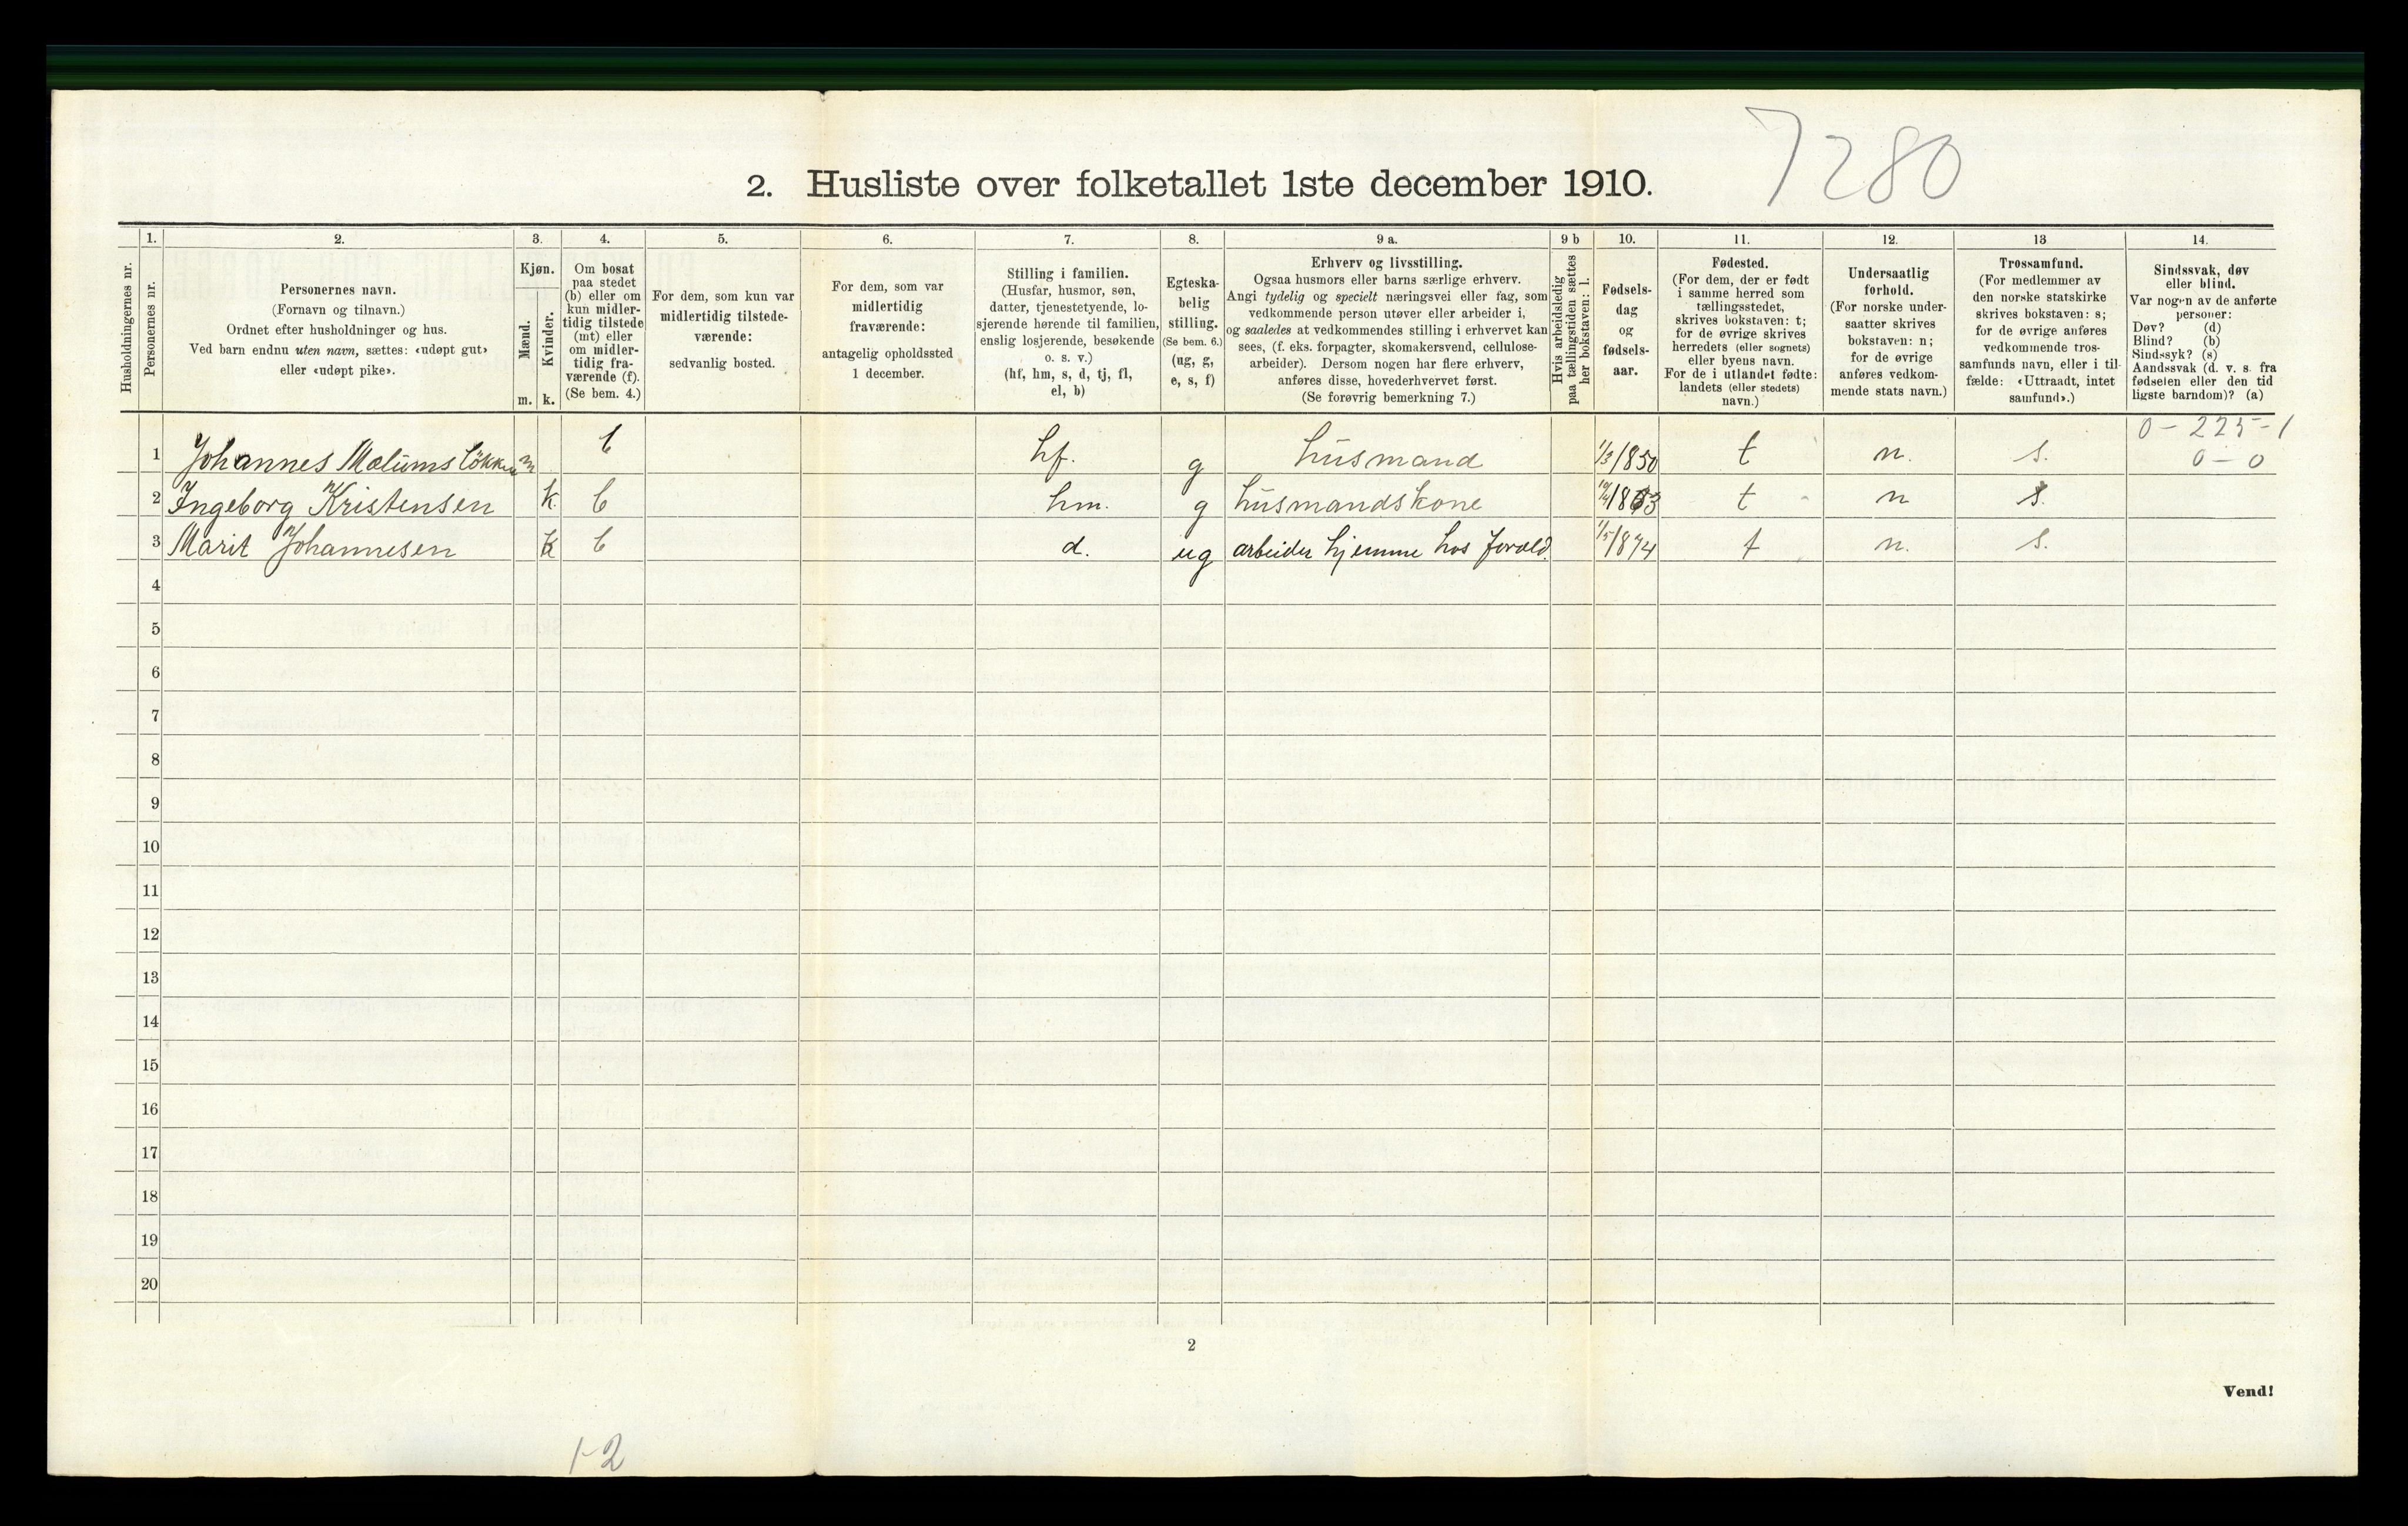 7280
2. Husliste over folketallet 1ste december 1910.
Husholdningernes nr.
1.
Personernes nr.
2.
Personernes navn.
(Fornavn og tilnavn.)
Ordnet efter husholdninger og hus.
Ved barn endnu uten navn, sættes: «udøpt gut»
eller «udøpt pike».
3.
Kjøn.
Mænd.
Kvinder.
m. k.
4.
Om bosat
paa stedet
(b) eller om
kun midler-
tidig tilstede
(mt) eller
om midler-
tidig fra-
værende (f).
(Se bem. 4.)
5.
For dem, som kun var
midlertidig tilstede-
værende:
sedvanlig bosted.
6.
For dem, som var
midlertidig
fraværende:
antagelig opholdssted
1 december.
7.
Stilling i familien.
(Husfar, husmor, søn,
datter, tjenestetyende, lo-
sjerende hørende til familien,
enslig losjerende, besøkende
o. s. v.)
(hf, hm, s, d, tj, fl,
el, b)
8.
Egteska-
belig
stilling.
(Se bem. 6.)
(ug, g,
e, s, f)
9 a.
Erhverv og livsstilling.
Ogsaa husmors eller barns særlige erhverv.
Angi tydelig og specielt næringsvei eller fag, som
vedkommende person utøver eller arbeider i,
og saaledes at vedkommendes stilling i erhvervet kan
sees, (f. eks. forpagter, skomakersvend, cellulose-
arbeider). Dersom nogen har flere erhverv,
anføres disse, hovederhvervet først.
(Se forøvrig bemerkning 7.)
9 b
Hvis arbeidsledig
paa tællingstiden sættes
her bokstaven: l.
10.
Fødsels-
dag
og
fødsels-
aar.
11.
Fødested.
(For dem, der er født
i samme herred som
tællingsstedet,
skrives bokstaven: t;
for de øvrige skrives
herredets (eller sognets)
eller byens navn.
For de i utlandet fødte:
landets (eller stedets)
navn.)
12.
Undersaatlig
forhold.
(For norske under-
saatter skrives
bokstaven: n;
for de øvrige
anføres vedkom-
mende stats navn.)
13
Trossamfund.
(For medlemmer av
den norske statskirke
skrives bokstaven: s;
for de øvrige anføres
vedkommende tros-
samfunds navn, eller i til-
fælde: «Uttraadt, intet
samfund».)
14.
Sindssvak, døv
eller blind.
Var nogen av de anførte
personer:
Døv? (d)
Blind? (b)
Sindssyk? (s)
Aandssvak (d. v. s. fra
fødselen eller den tid
ligste barndom)? (a)
0 - 225 - 1
0 - 0
1 Johannes Mælumsløkken m b hf. g husmand 1/3 1850 t n. s.
2 Ingeborg Kristensen k. b hm. g husmandskone t n s.
3 Marit Johannesen k b d. ug arbeider hjemme hos foræld. 1/5 1874 t n. s.
4
5
6
7
8
9
10
11
12
13
14
15
16
17
18
19
20
2
Vend!
1-2